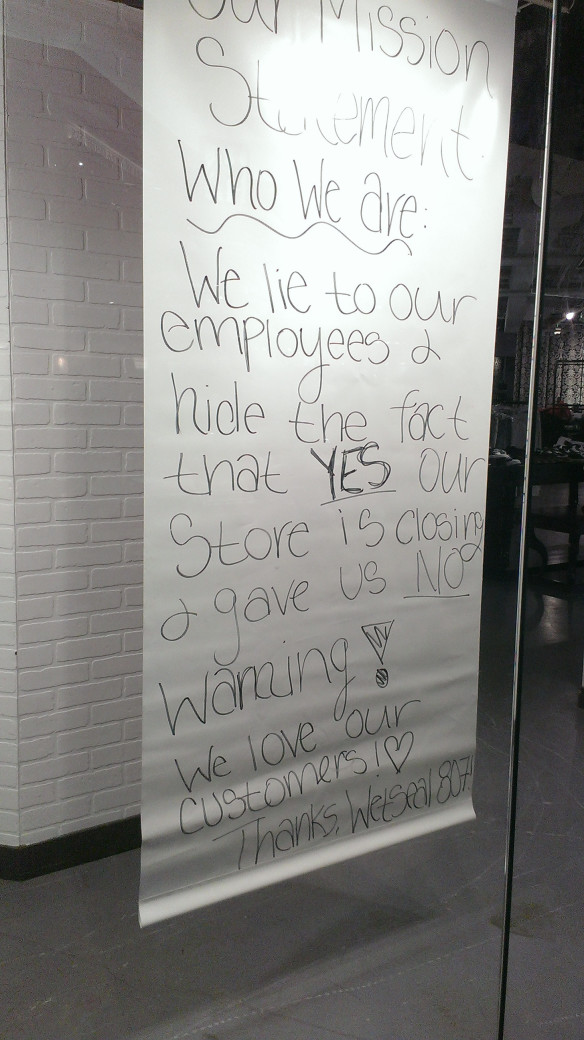 Our Mission
Statement:
Who We are:
We lie to our
employees &
hide the fact
that YES our
Store is closing
& gave us NO
Warning!
We love our
customers! ♡
Thanks, WetSeal 807!